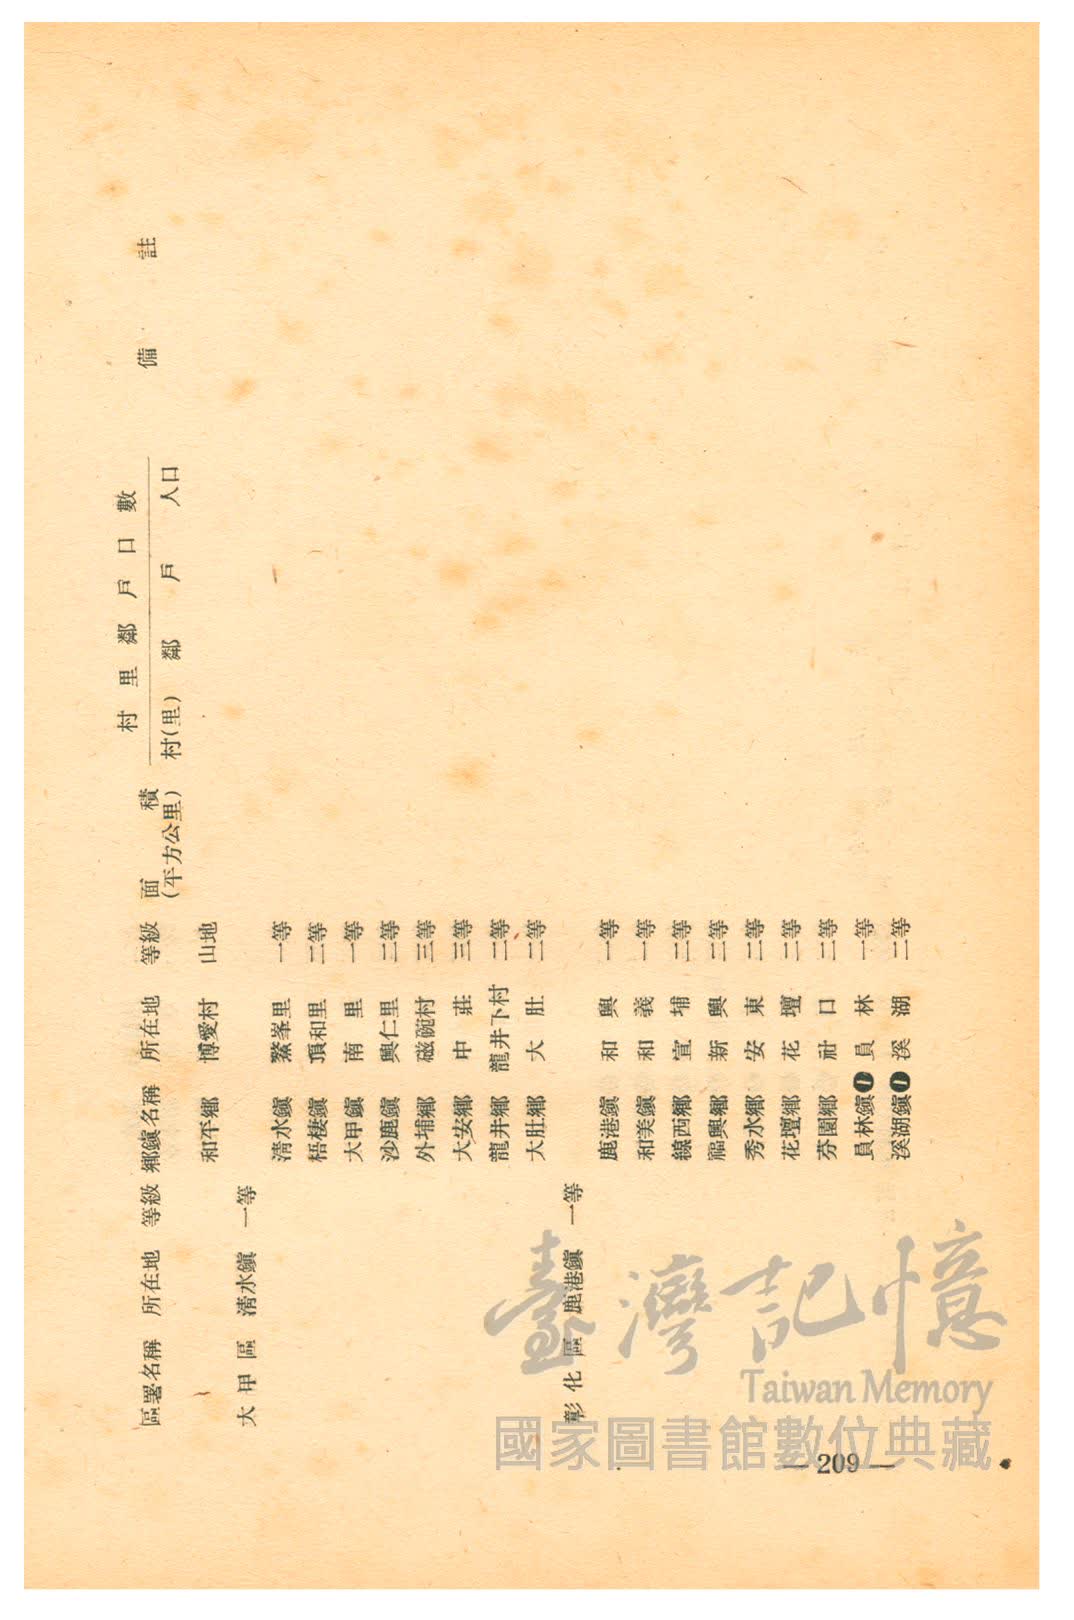 村里鄰戶口數
區署名稱 所在地 等級 鄉鎮名稱 所在地 等級 面積 備註
(平方公里) 村(里) 鄰 戶 人口
和平鄉 博愛村 山地
大甲區 清水鎮 一等
清水鎮 鰲峯里 一等
梧棲鎮 頂和里 二等
大甲鎮 南里 一等
沙鹿鎮 興仁里 二等
外埔鄉 磁磘村 三等
大安鄉 中莊 三等
龍井鄉 龍井下村 二等
大肚鄉 大肚 二等
彰化區 鹿港鎮 一等
鹿港鎮 和興 一等
和美鎮 和義 一等
線西鄉 寓埔 二等
福興鄉 新興 二等
秀水鄉 安東 二等
花壇鄉 花壇 二等
芬園鄉 社口 二等
員林鎮❶ 員林 一等
溪湖鎮❶ 溪湖 二等
臺灣記憶
Taiwan Memory
國家圖書館數位典藏
— 209 —